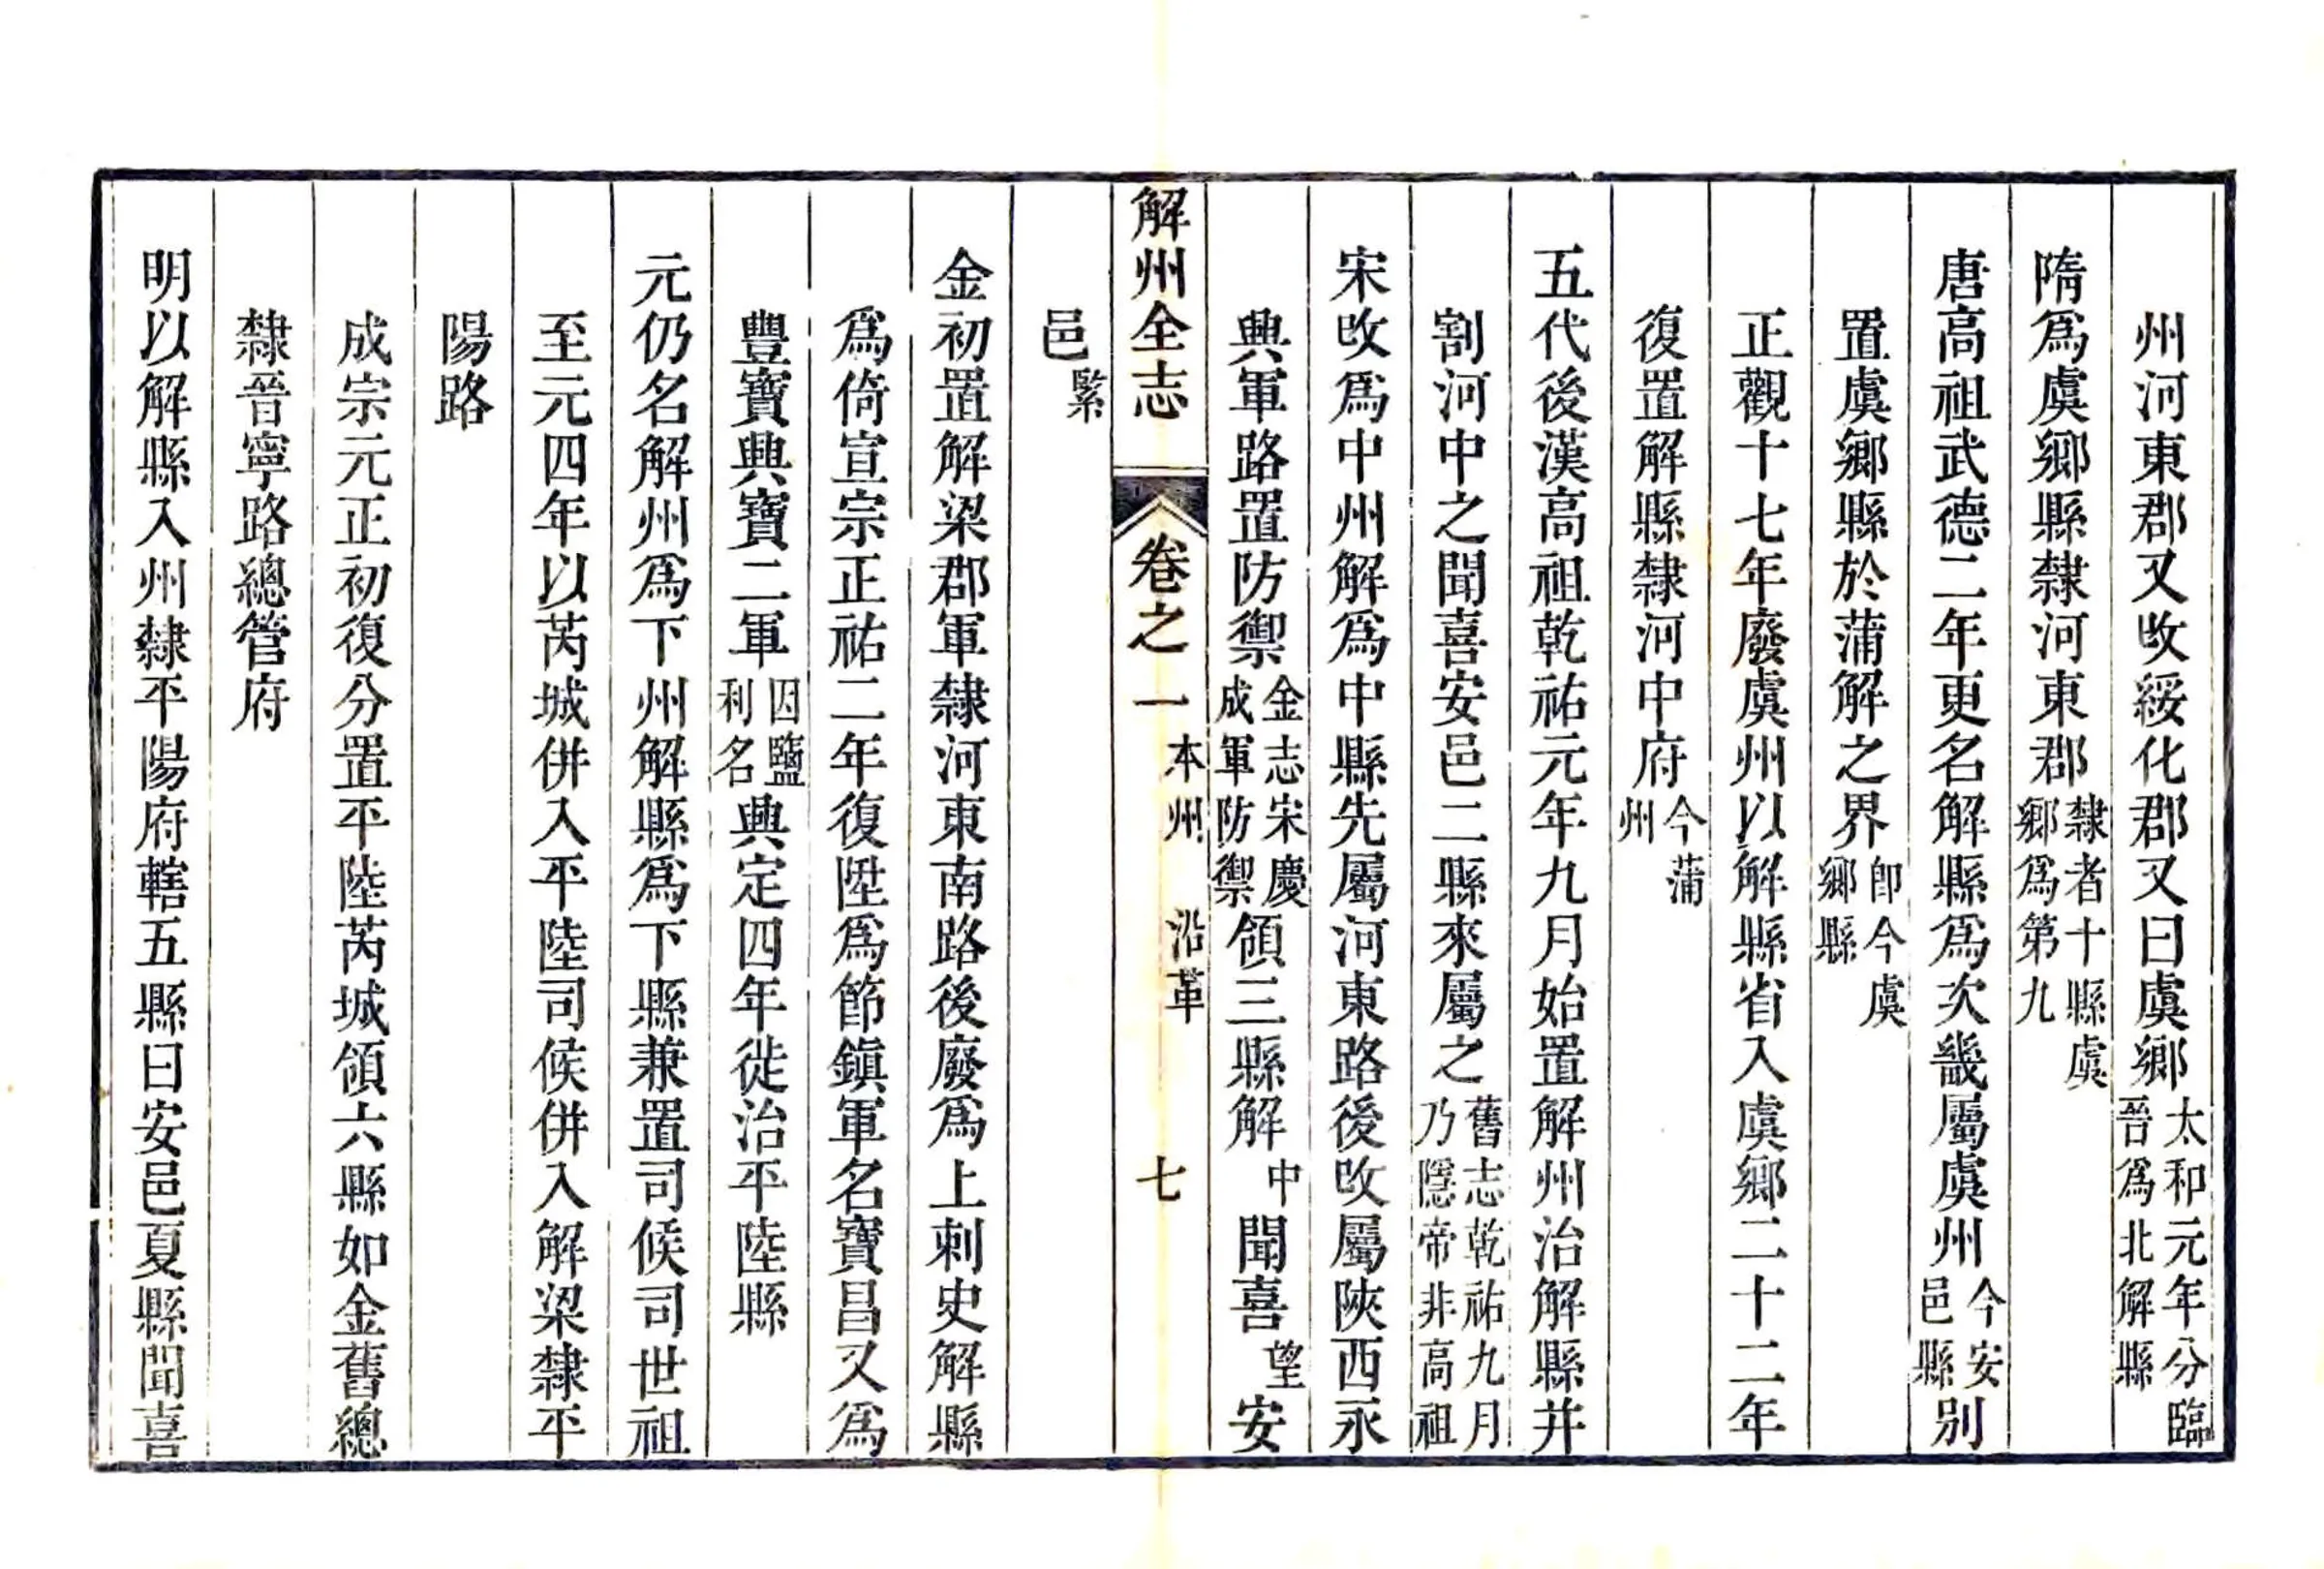 州河東郡又攺綏化郡又曰虞鄉太和元年分臨晉爲北解縣
隋爲虞鄉縣隸河東郡隸者十縣虞鄉爲第九
唐高祖武德二年更名解縣爲次畿屬虞州今安邑縣別
置虞鄉縣於蒲解之界卽今虞鄉縣
正觀十七年廢虞州以解縣省入虞鄉二十二年
復置解縣隸河中府今蒲州
五代後漢高祖乾祐元年九月始置解州治解縣并
割河中之聞喜安邑二縣來屬之舊志乾祐九月乃隱帝非高祖
宋攺爲中州解爲中縣先屬河東路後攺屬陝西永
興軍路置防禦金志宋慶成軍防禦領三縣解中聞喜望安
解州全志 卷之一 本州 沿革 七
邑緊
金初置解梁郡軍隸河東南路後廢爲上刺史解縣
爲倚宣宗正祐二年復陞爲節鎮軍名寶昌又爲
豐寶興寶二軍因鹽利名興定四年徙治平陸縣
元仍名解州爲下州解縣爲下縣兼置司候司世祖
至元四年以芮城併入平陸司候併入解梁隸平
陽路
成宗元正初復分置平陸芮城領六縣如金舊總
隸晉寧路總管府
明以解縣入州隸平陽府轄五縣曰安邑夏縣聞喜